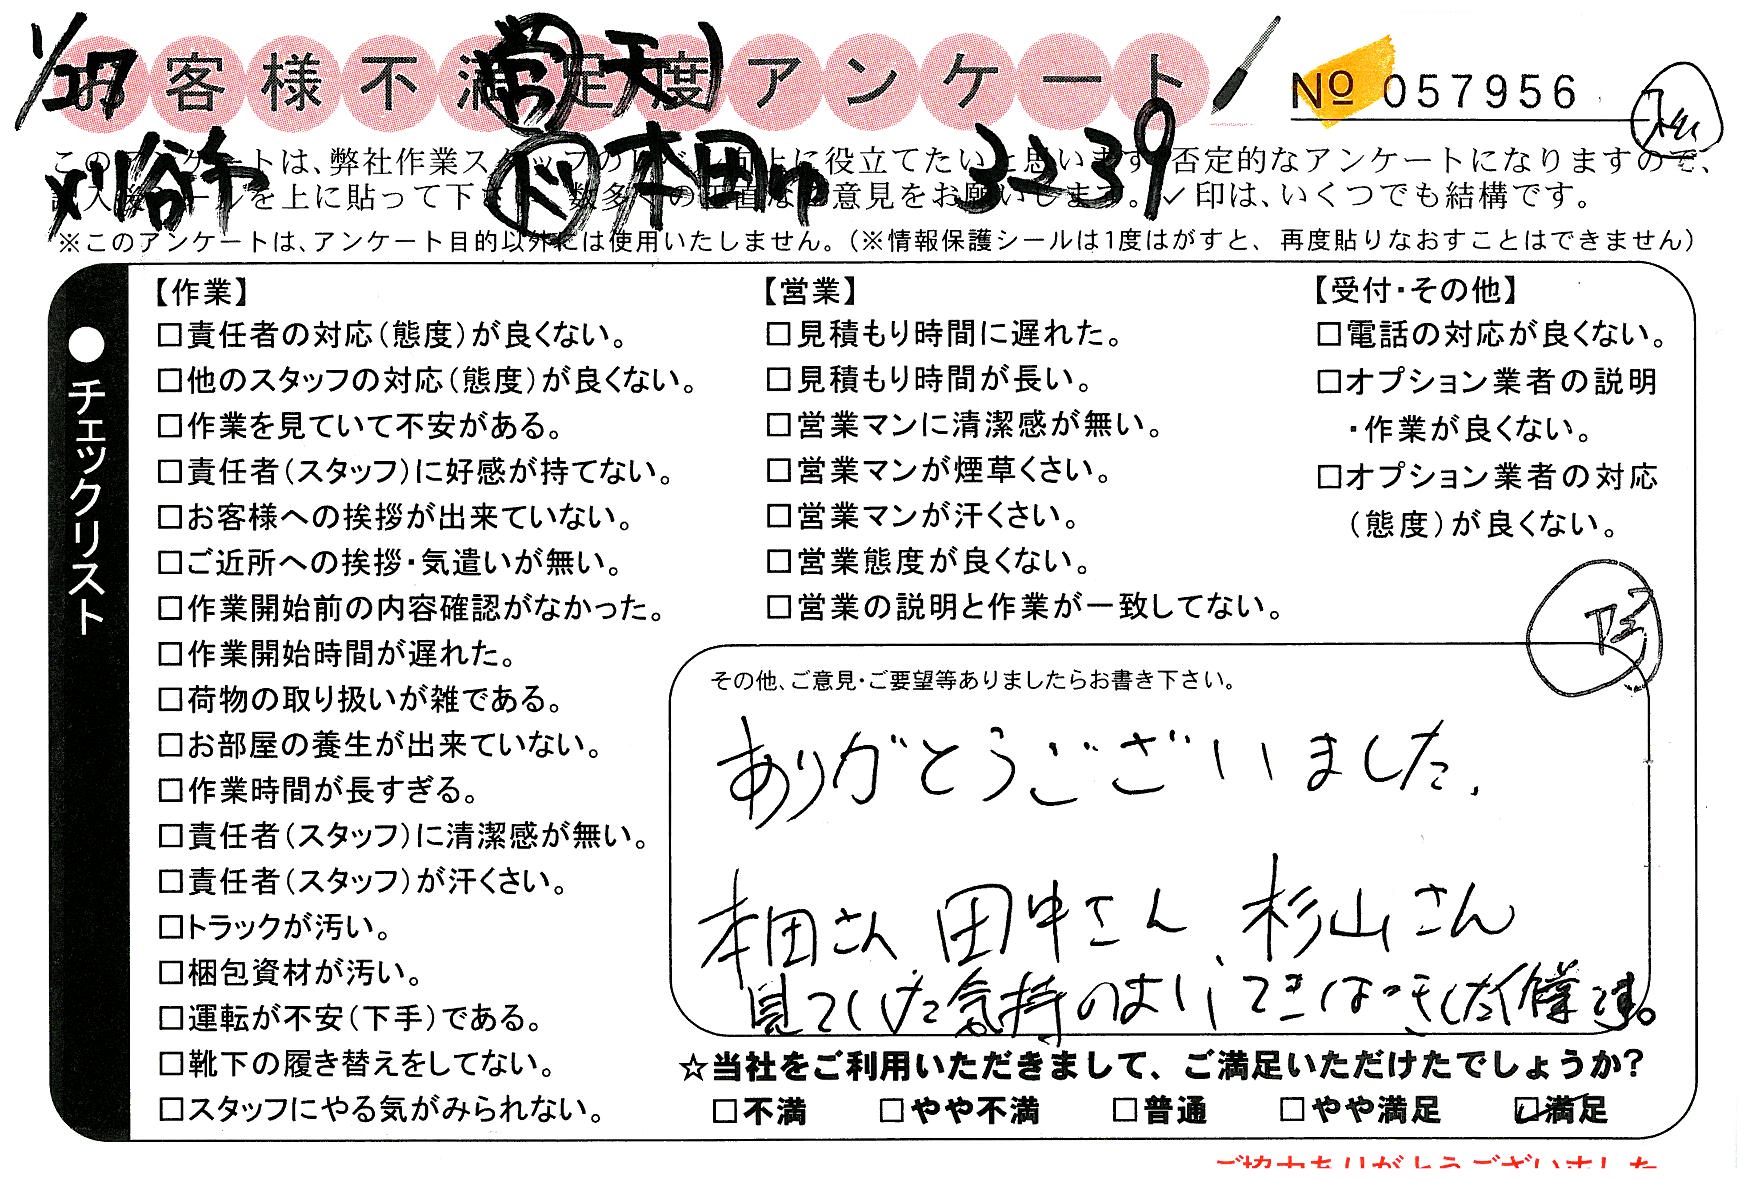 1/27 常 天1
お客様不満足度アンケート
№ 057956
刈谷市 ド 本田 3-39
このアンケートは、弊社作業スタッフのレベル向上に役立てたいと思います。否定的なアンケートになりますので、
記入後シールを上に貼って下さい。数多くの正直なご意見をお願いします。✓印は、いくつでも結構です。
※このアンケートは、アンケート目的以外には使用いたしません。（※情報保護シールは1度はがすと、再度貼りなおすことはできません）
●チェックリスト
【作業】
□責任者の対応（態度）が良くない。
□他のスタッフの対応（態度）が良くない。
□作業を見ていて不安がある。
□責任者（スタッフ）に好感が持てない。
□お客様への挨拶が出来ていない。
□ご近所への挨拶・気遣いが無い。
□作業開始前の内容確認がなかった。
□作業開始時間が遅れた。
□荷物の取り扱いが雑である。
□お部屋の養生が出来ていない。
□作業時間が長すぎる。
□責任者（スタッフ）に清潔感が無い。
□責任者（スタッフ）が汗くさい。
□トラックが汚い。
□梱包資材が汚い。
□運転が不安（下手）である。
□靴下の履き替えをしてない。
□スタッフにやる気がみられない。
【営業】
□見積もり時間に遅れた。
□見積もり時間が長い。
□営業マンに清潔感が無い。
□営業マンが煙草くさい。
□営業マンが汗くさい。
□営業態度が良くない。
□営業の説明と作業が一致してない。
【受付・その他】
□電話の対応が良くない。
□オプション業者の説明
・作業が良くない。
□オプション業者の対応
（態度）が良くない。
その他、ご意見・ご要望等ありましたらお書き下さい。
ありがとうございました。
本田さん 田中さん、杉山さん
見ていて気持のよい、てきぱきした作業です。
☆当社をご利用いただきまして、ご満足いただけたでしょうか？
□不満 □やや不満 □普通 □やや満足 ☑満足
ご協力ありがとうございました